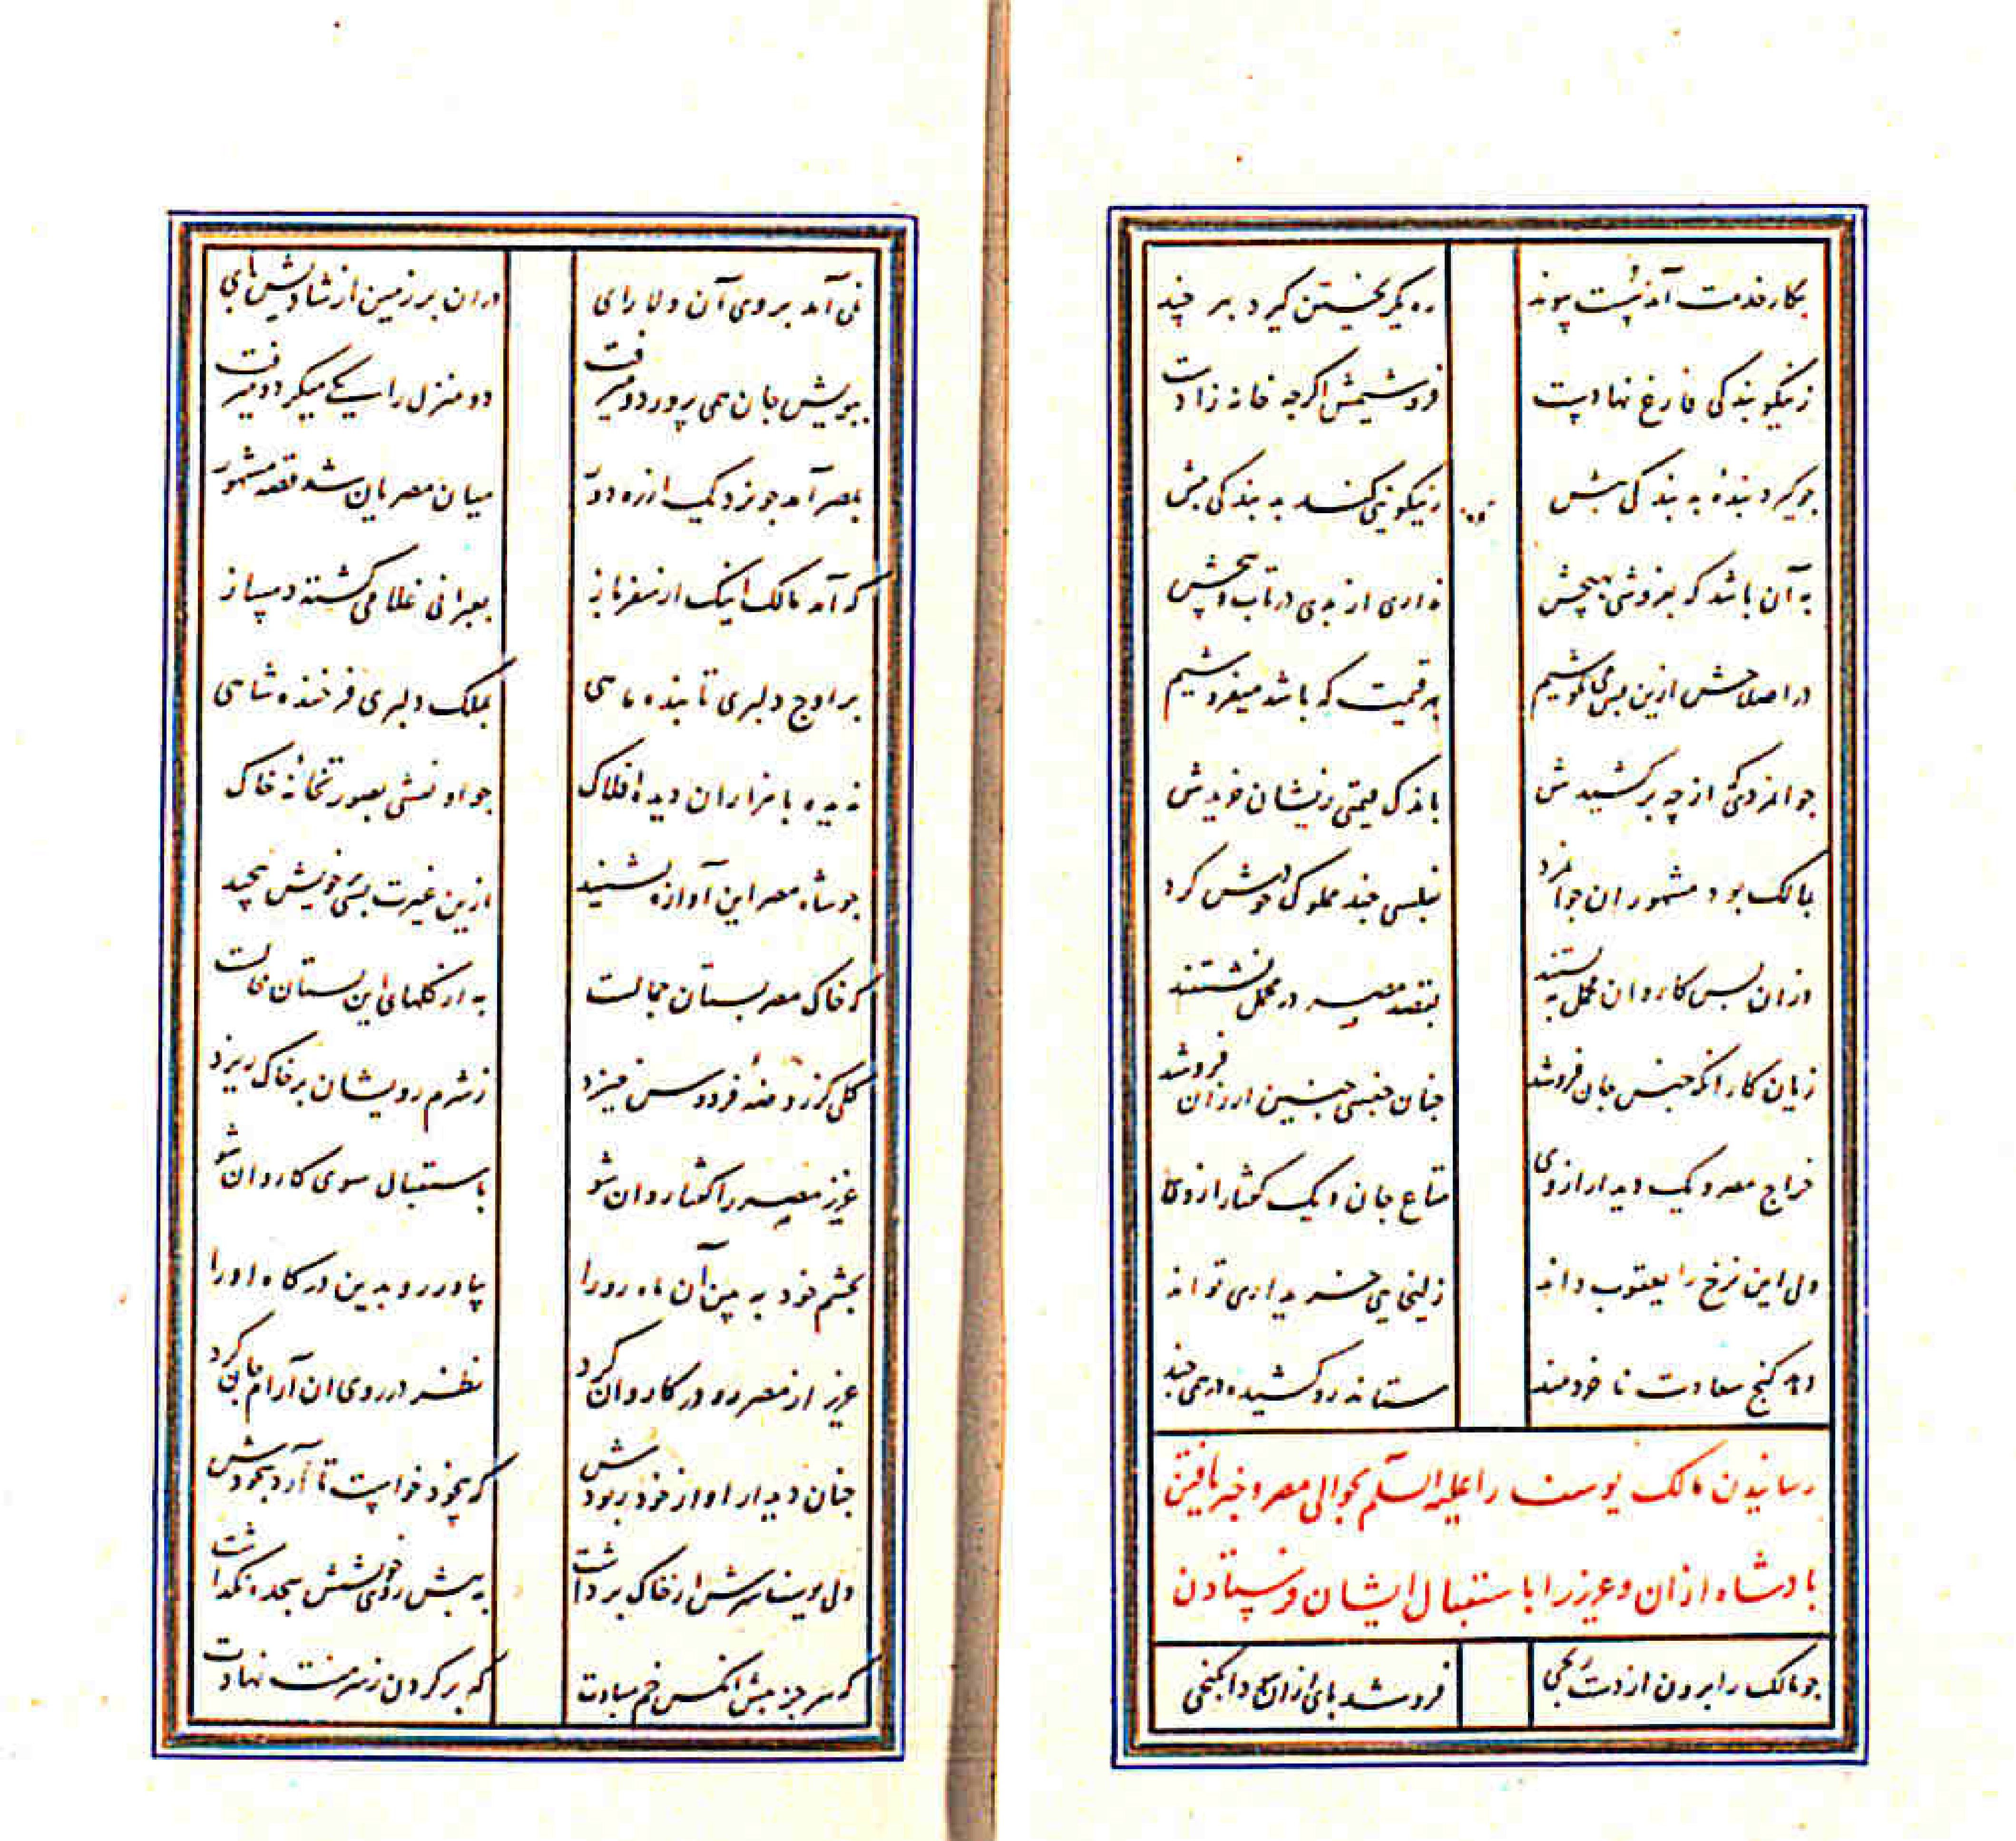 بکار خدمت آمد سُست پیوند ره بگریختن گیرد بهر چند
ز نیکو بندگی فارغ نهادست فروشیمش اگرچه خانه زادست
جو گیرد بنده بد بندگی پیش ز نیکویی کند بد بندگی بیش
به آن باشد که بفروشی بهیچش نداری از بدی در تاب و پیچش
در اصلاحش ازین پس می نکوشیم بهر قیمت که باشد میفروشیم
جوانمردی که از چه برکشیدش باندک قیمتی زیشان خریدش
مالک بود مشهور آن جوانمرد بفلسی چند مملوک خودش کرد
وزان پس کاروان محمل به بستند بقصد مصر در محمل نشستند
زیان کار آنکه جنس جان فروشد جنان جنسی جنین ارزان فروشد
خراج مصر و یک دیدار از وی متاع جان و یک گفتار از وی
ولی این نرخ را یعقوب داند زلیخایی خریداری تواند
دهد گنج سعادت نا خردمند ستاند رو کشیده درهمی چند
رسانیدن مالک یوسف را علیه السلم بحوالی مصر و خبر یافتن
بادشاه ازان و عزیز را باستقبال ایشان فرستادن
جو مالک را برون از دست رنجی فروشد پای ازان سودا بگنجی
نمی آمد بروی آن دلارای دران بر زمین از شادیش پای
ببویش جان همی پرورد و میرفت دو منزل را یکی میکرد و میرفت
بمصر آمد جو نزدیک از ره دور میان مصریان شد قصه مشهور
که آمد مالک اینک از سفر باز بعبرانی غلامی گشته دمساز
بر اوج دلبری تابنده ماهی بملک دلبری فرخنده شاهی
ندیده با هزاران دیده افلاک جو او نقشی بصورتخانهٔ خاک
جو شاه مصر این آوازه بشنید ازین غیرت بسی بر خویش پیچید
که خاک مصر بستان جمالست به از گلهای این بستان محالست
گلی کز روضهٔ فردوس خیزد ز شرم رویشان بر خاک ریزد
عزیز مصر را گفتا روان شو باستقبال سوی کاروان شو
بجشم خود به بین آن ماه رو را بیاور رو بدین درگاه او را
عزیز از مصر رو در کاروان کرد نظر در روی آن آرام جان کرد
جنان دیدار او از خود ربودش که بیخود خواست تا آرد سجودش
ولی یوسف سرش از خاک برداشت به پیش روی خویشش سجده نگذاشت
که سر جز پیش آنکس خم مبادت که بر گردن ز سر منت نهادت